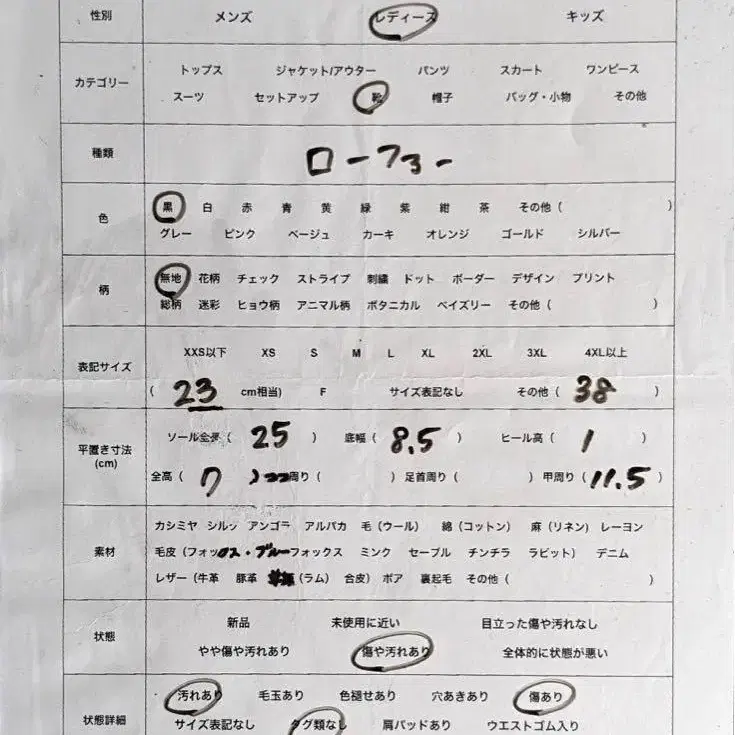 性別 メンズ レディース キッズ
カテゴリー
トップス ジャケット/アウター パンツ スカート ワンピース
スーツ セットアップ 靴 帽子 バッグ・小物 その他
種類 ローファー
色
黒 白 赤 青 黄 緑 紫 紺 茶 その他 ( )
グレー ピンク ベージュ カーキ オレンジ ゴールド シルバー
柄
無地 花柄 チェック ストライプ 刺繍 ドット ボーダー デザイン プリント
総柄 迷彩 ヒョウ柄 アニマル柄 ボタニカル ペイズリー その他 ( )
表記サイズ
XXS以下 XS S M L XL 2XL 3XL 4XL以上
( 23 cm相当) F サイズ表記なし その他 ( 38 )
平置き寸法
(cm)
ソール全長 ( 25 ) 底幅 ( 8.5 ) ヒール高 ( 1 )
全高 ( 7 ) 周り ( ) 足首周り ( ) 甲周り ( 11.5 )
素材
カシミヤ シルク アンゴラ アルパカ 毛 (ウール) 綿 (コットン) 麻 (リネン) レーヨン
毛皮 (フォックス・ブルーフォックス ミンク セーブル チンチラ ラビット) デニム
レザー (牛革 豚革 (ラム) 合皮) ボア 裏起毛 その他 ( )
状態
新品 未使用に近い 目立った傷や汚れなし
やや傷や汚れあり 傷や汚れあり 全体的に状態が悪い
状態詳細
汚れあり 毛玉あり 色褪せあり 穴あきあり 傷あり
サイズ表記なし タグ類なし 肩パッドあり ウエストゴム入り